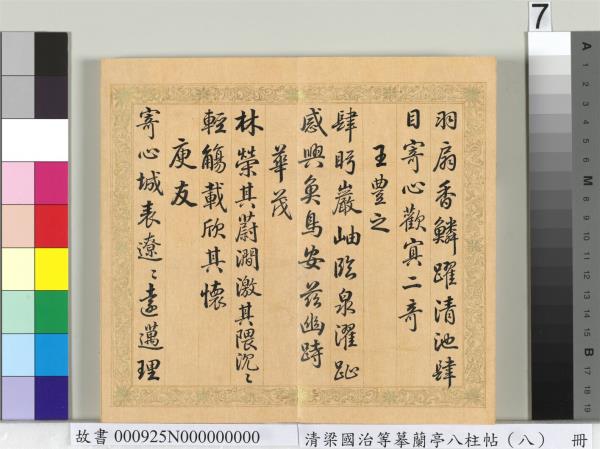 7
羽扇香鱗躍清池肆
目寄心歡冥二奇
王豐之
肆眄巖岫臨泉濯趾
感興魚鳥安茲幽跱
華茂
林榮其蔚澗激其隈汎〻
輕觴載欣其懷
庾友
寄心域表遼〻遠邁理
故書 000925N000000000
清梁國治等摹蘭亭八柱帖（八） 冊
A 1 2 3 4 5 6 M 8 9 10 11 12 13 14 15 B 17 18 19